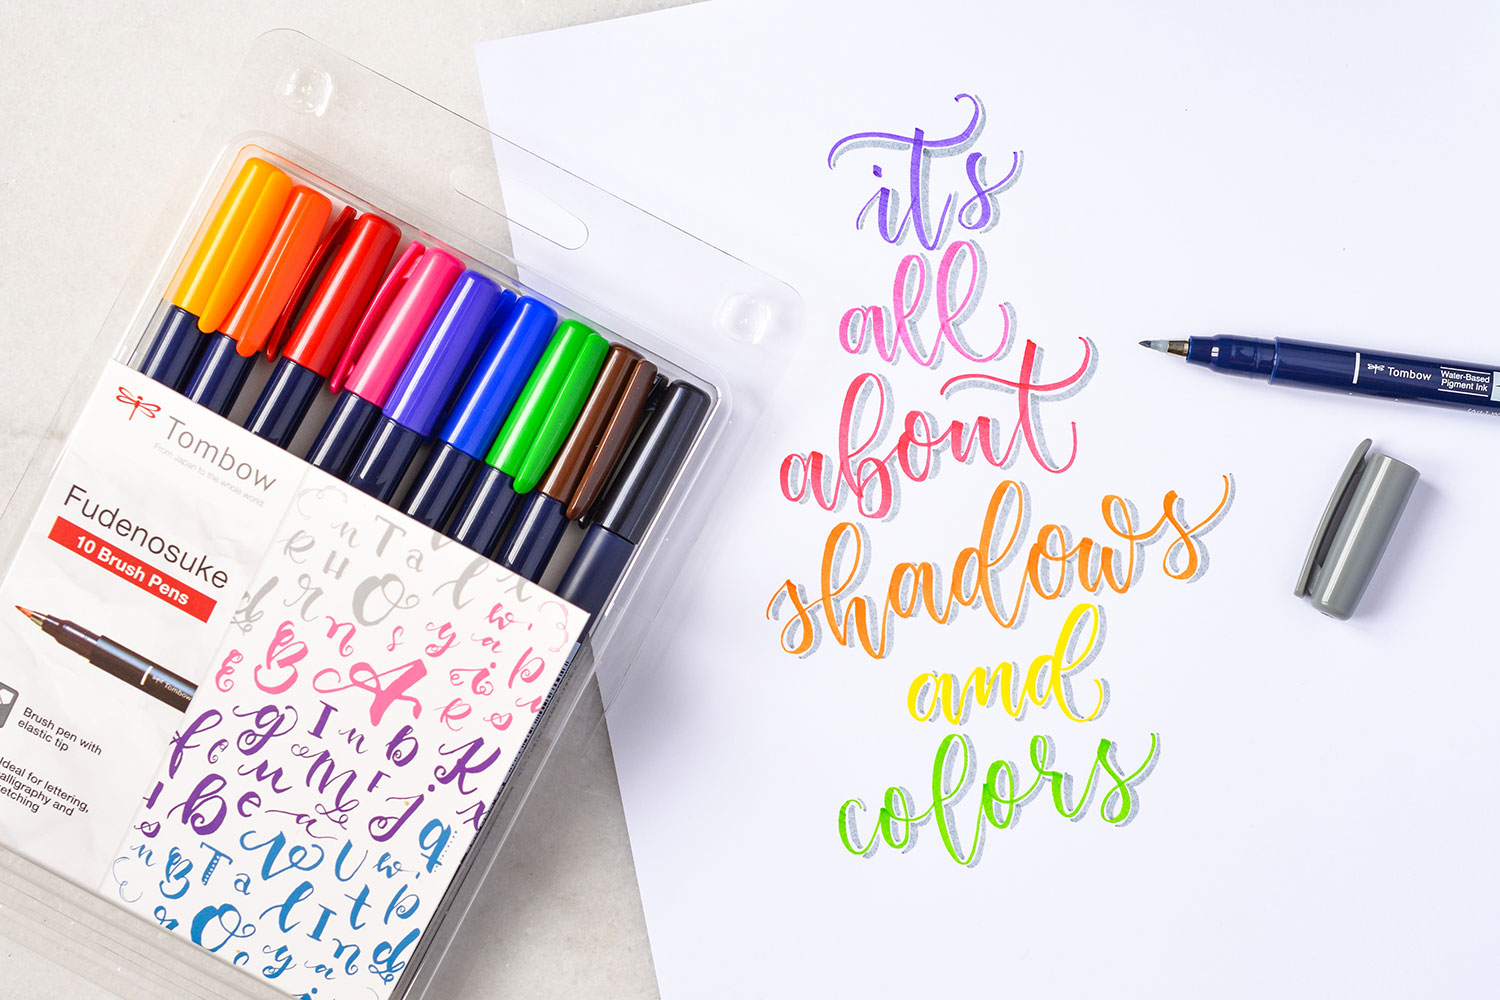 it's
all
about
shadows
and
colors
Tombow
From Japan to the whole world.
Fudenosuke
10 Brush Pens
Brush pen with
elastic tip
Ideal for lettering,
calligraphy and
sketching
Tombow
Water-Based
Pigment Ink